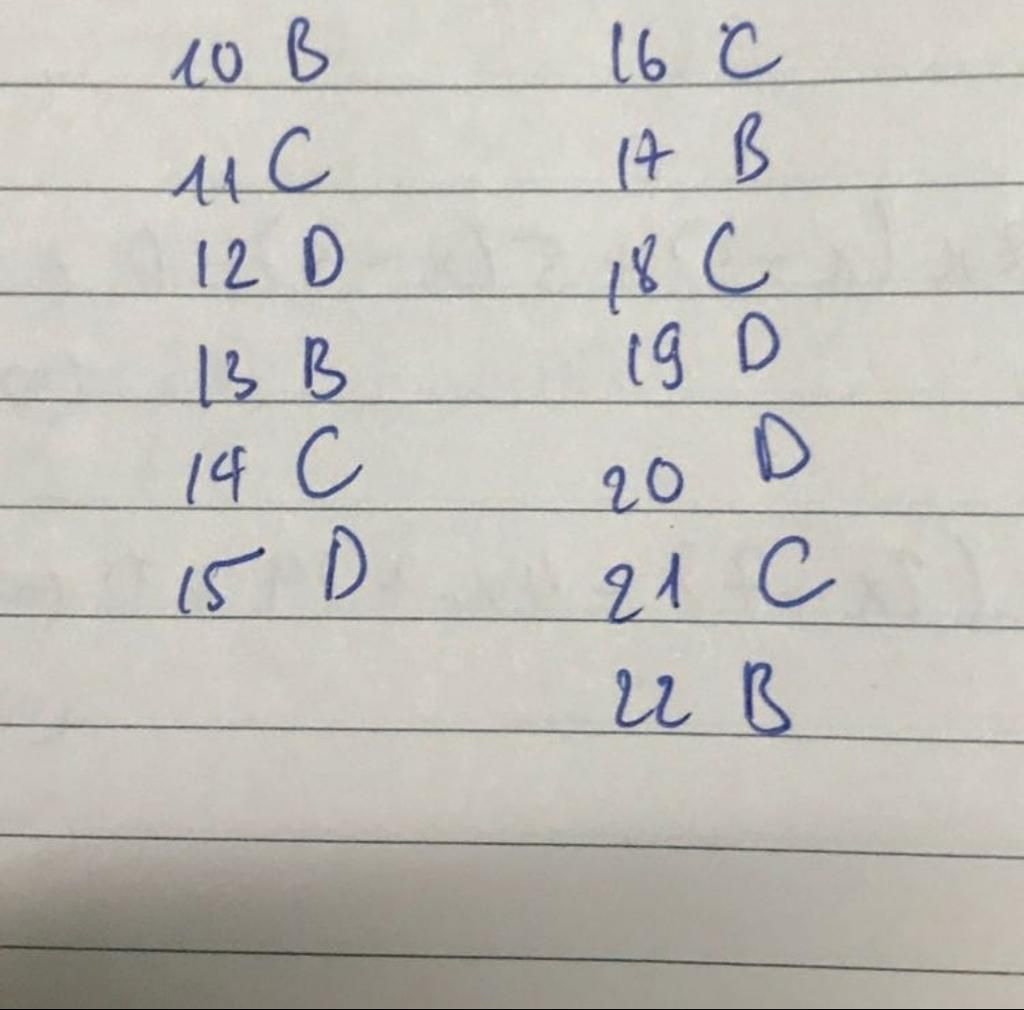 10 B
11 C
12 D
13 B
14 C
15 D
16 C
17 B
18 C
19 D
20 D
21 C
22 B